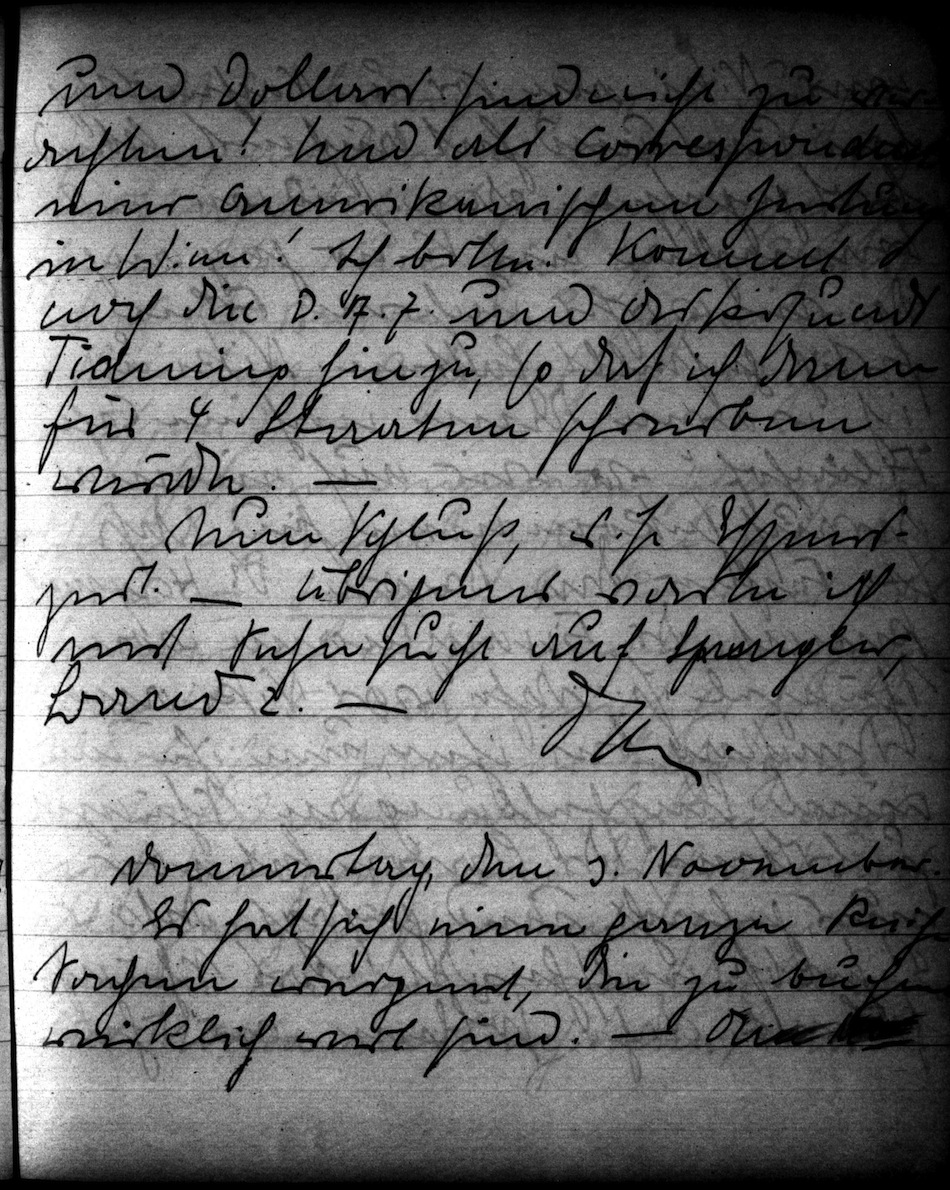 und Dollars sind nicht zu ver-
achten! Und als Correspondent
einer amerikanischen Zeitung
in Wien! Ich bitte! Kommt
noch die D.A.Z. und
Tidning hinzu, so daß ich dann
für 4 Staaten schreiben
würde. —
Nun Schluß,
— Übrigens warte ich
mit Sehnsucht auf Spengler,
Band 2. —
Donnerstag, den 3. November.
Es hat sich eine ganze Reihe
Sachen ereignet, die zu buchen
wirklich wert sind. — Die